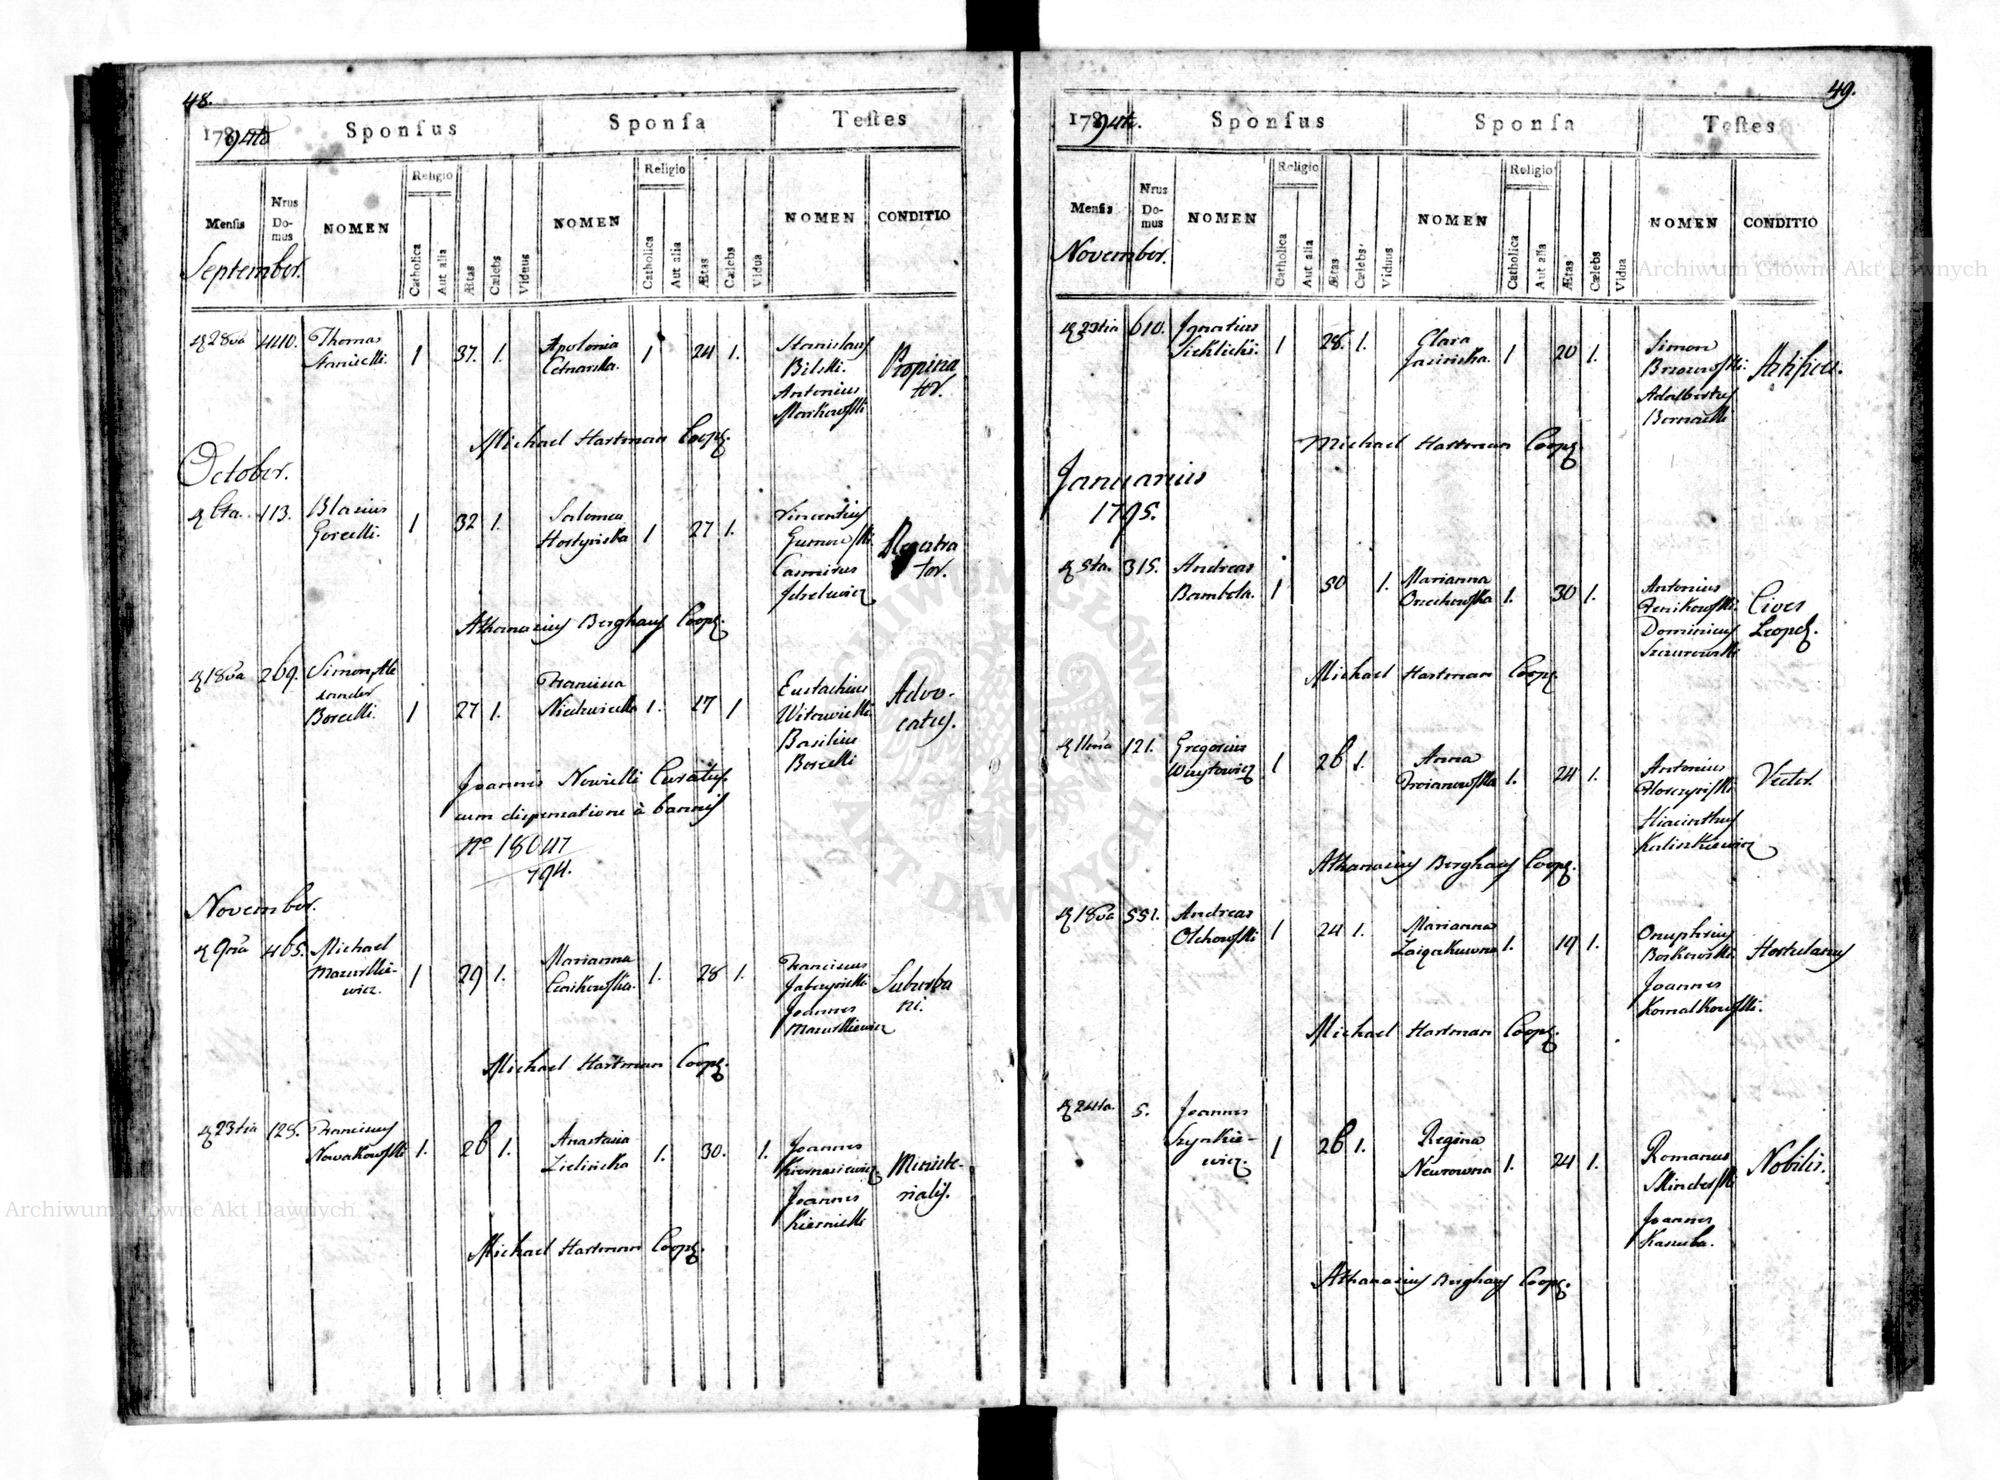 48.
1794to
Sponſus
Sponſa
Teſtes
Menſis
Nrus
Do-
mus
NOMEN
Religio
Catholica
Aut alia
Ætas
Cælebs
Viduus
NOMEN
Religio
Catholica
Aut alia
Ætas
Cælebs
Vidua
NOMEN
CONDITIO
September.
28va 440. Thomas
Stanicelli. 1 37. 1.
Apolonia
Cetnarska. 1 24 1.
Stanislaus
Bilski.
Antonius
Markowski
Propina
tor.
Michael Hartman Coop.
October.
6ta. 113. Blasius
Gorcelli. 1 32 1.
Salomea
Hostyńska 1 27 1.
Vincentius
Casmirus
Regestra
tor.
Athanasius Berghaus Coop.
18va 269. Simon Ale
xander
Borcelli. 1 27 1.
Francisca
1. 17 1
Eustachius
Witwicki
Basilius
Borcelli
Advo-
catus.
Joannes Nowicki Curatus
cum dispensatione à bannis
No 18047
794.
November.
9na 465. Michael
Mazurkie-
wicz. 1 29 1.
Marianna
Czaikowska. 1. 28 1.
Franciscus
Joannes
Mazurkiewicz
Suburba
ni.
Michael Hartman Coop.
23tia 128. Franciscus
Nowakowski 1. 26 1.
Anastasia
Zielińska 1. 30. 1.
Joannes
Joannes
Kiernicki
Ministe-
rialis.
Michael Hartman Coop.
49.
1794to.
Sponſus
Sponſa
Teſtes
Menſis
Nrus
Do-
mus
NOMEN
Religio
Catholica
Aut alia
Ætas
Cælebs
Viduus
NOMEN
Religio
Catholica
Aut alia
Ætas
Cælebs
Vidua
NOMEN
CONDITIO
November.
23tia 610. Ignatius
Sieklicki. 1 28. 1.
Clara
Jasińska. 1 20 1.
Simon
Brzozowski.
Adalbertus
Bernacki
Artifices.
Michael Hartman Coop.
Januarius
1795.
5ta. 315. Andreas
Bambola. 1 50 1.
Marianna
Orzechowska 1. 30 1.
Antonius
Dominicus
Szczurowski
Cives
Leopol.
Michael Hartman Coop.
11ma 121. Gregorius
Woytowicz 1 26 1.
Anna
Troianowska 1. 24 1.
Antonius
Hiacinthus
Kalinkiewicz
Vector.
Athanasius Berghaus Coop.
18va 551. Andreas
Olchowski 1 24 1.
Marianna
1. 19 1.
Onuphrius
Borkowski
Joannes
Komalkowski.
Hortulanus
Michael Hartman Coop.
24ta. 5. Joannes
Szynkie-
wicz. 1 26 1.
Regina
Neurowna 1. 24 1.
Romanus
Joannes
Kaszuba.
Nobilis.
Athanasius Berghaus Coop.
Archiwum Główne Akt Dawnych
Archiwum Główne Akt Dawnych
ARCHIWUM GŁÓWNE
AKT DAWNYCH